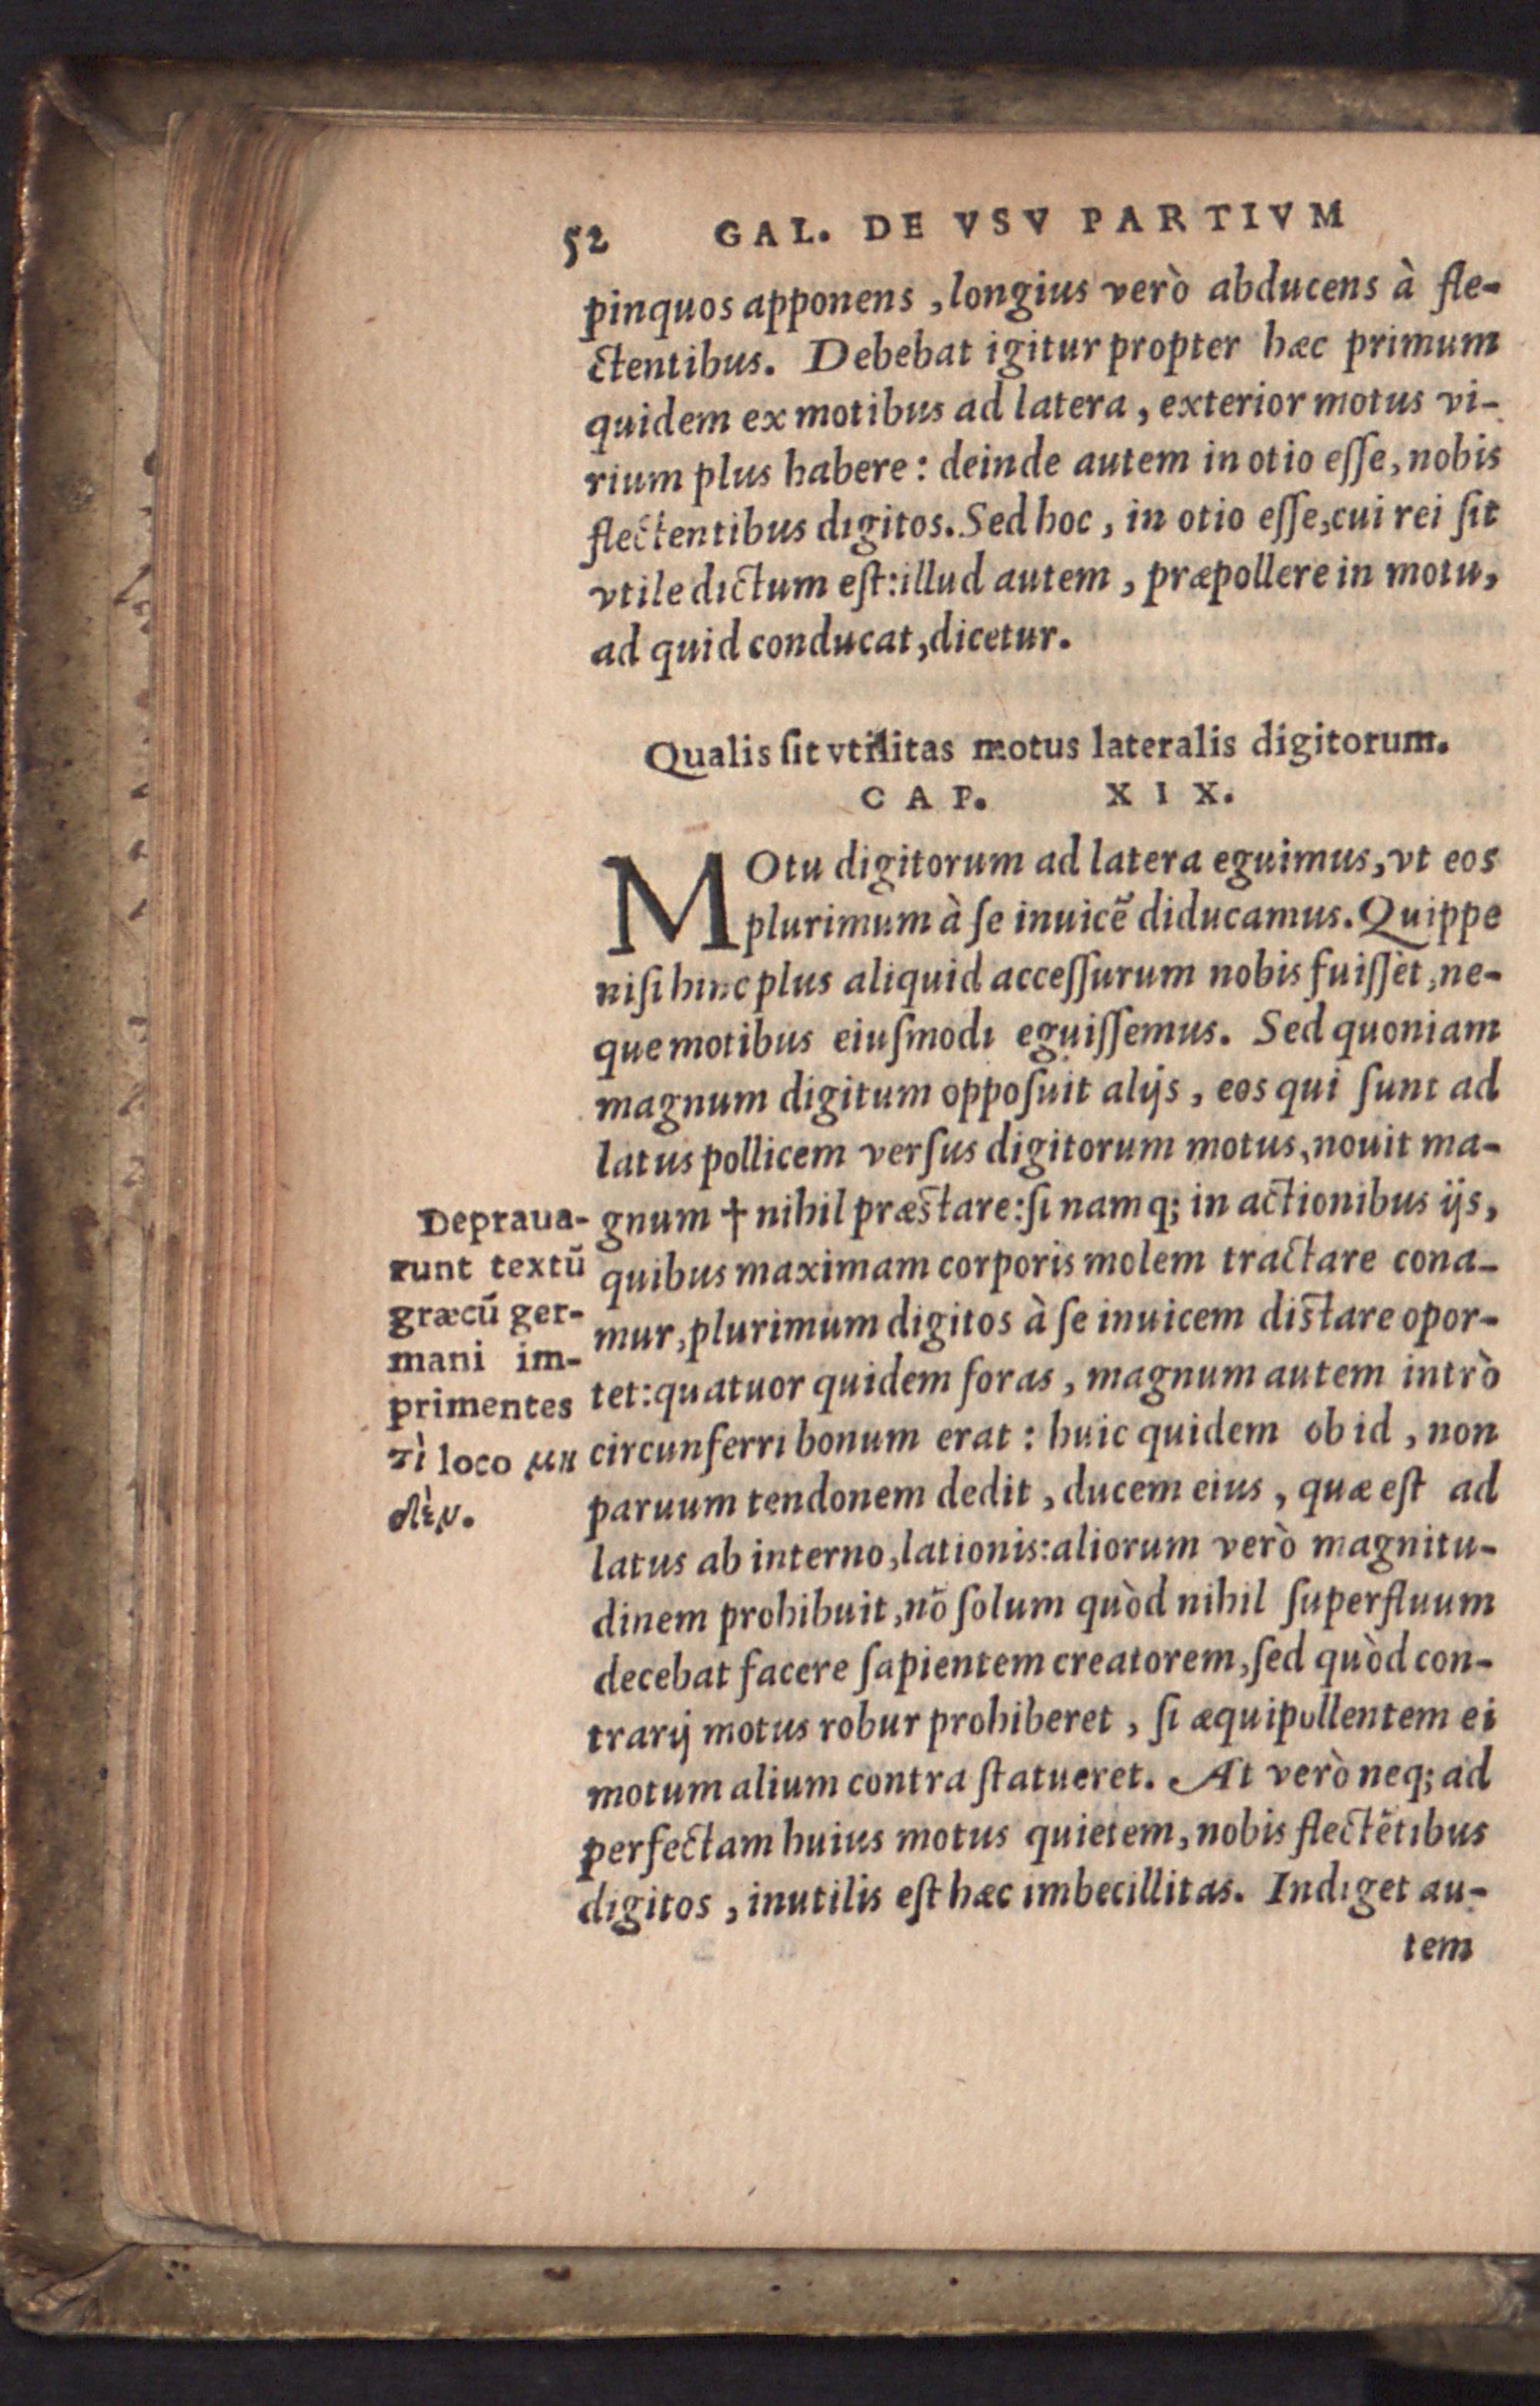 52 GAL. DE VSV PARTIVM
pinquos apponens, longius verò abducens à fle-
ctentibus. Debebat igitur propter hæc primum
quidem ex motibus ad latera, exterior motus vi-
rium plus habere: deinde autem in otio eſſe, nobis
flectentibus digitos. Sed hoc, in otio eſſe, cui rei ſit
vtile dictum eſt: illud autem, præpollere in motu,
ad quid conducat, dicetur.
Qualis ſit vtilitas motus lateralis digitorum.
CAP. XIX.
MOtu digitorum ad latera eguimus, vt eos
plurimum à ſe inuicẽ diducamus. Quippe
niſi hinc plus aliquid acceſſurum nobis fuiſſet, ne-
que motibus eiuſmodi eguiſſemus. Sed quoniam
magnum digitum oppoſuit alijs, eos qui ſunt ad
latus pollicem verſus digitorum motus, nouit ma-
gnum † nihil præstare: ſi namq; in actionibus ijs,
quibus maximam corporis molem tractare cona-
mur, plurimum digitos à ſe inuicem distare opor-
tet: quatuor quidem foras, magnum autem intrò
circunferri bonum erat: huic quidem ob id, non
paruum tendonem dedit, ducem eius, quæ eſt ad
latus ab interno, lationis: aliorum verò magnitu-
dinem prohibuit, nõ ſolum quòd nihil ſuperfluum
decebat facere ſapientem creatorem, ſed quòd con-
trarij motus robur prohiberet, ſi æquipollentem ei
motum alium contra ſtatueret. At verò neq; ad
perfectam huius motus quietem, nobis flectẽtibus
digitos, inutilis eſt hæc imbecillitas. Indiget au-
tem
Depraua-
runt textũ
græcũ ger-
mani im-
primentes
τὶ loco μη
δὲν.